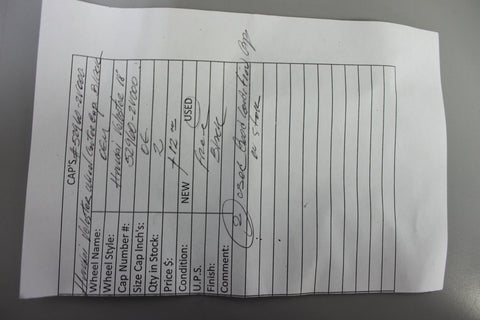 CAP'S # 52960-2V000
Hyundai Veloster wheel center cap Black
Wheel Name: OEM
Wheel Style: Hyundai Veloster 18
Cap Number #: 52960-2V000
Size Cap Inch's:
Qty in Stock: 2
Price $: $12
Condition: NEW USED
U.P.S. Free
Finish: Black
Comment:
2 used Good condition Cap
in stock